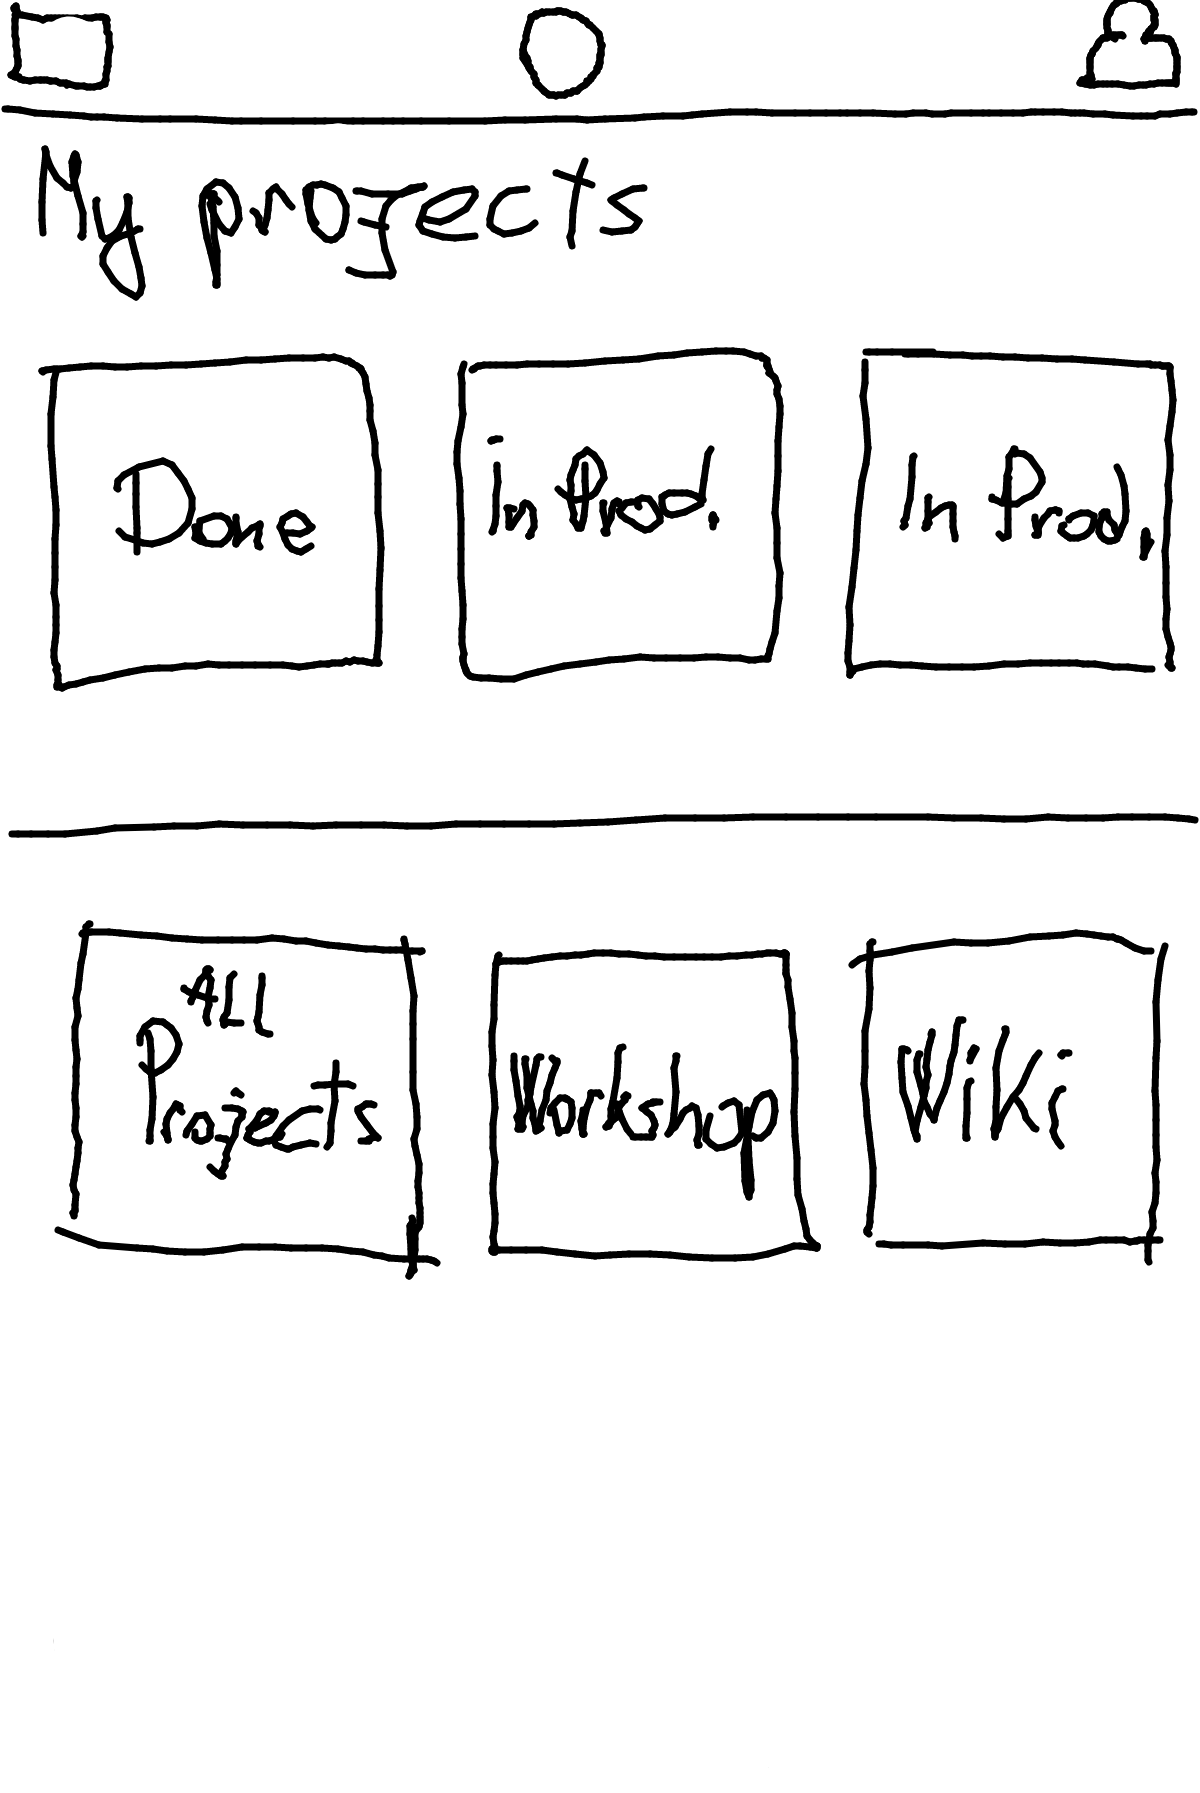 My projects
Done
in Prod.
In Prod.
ALL
Projects
Workshop
Wiki